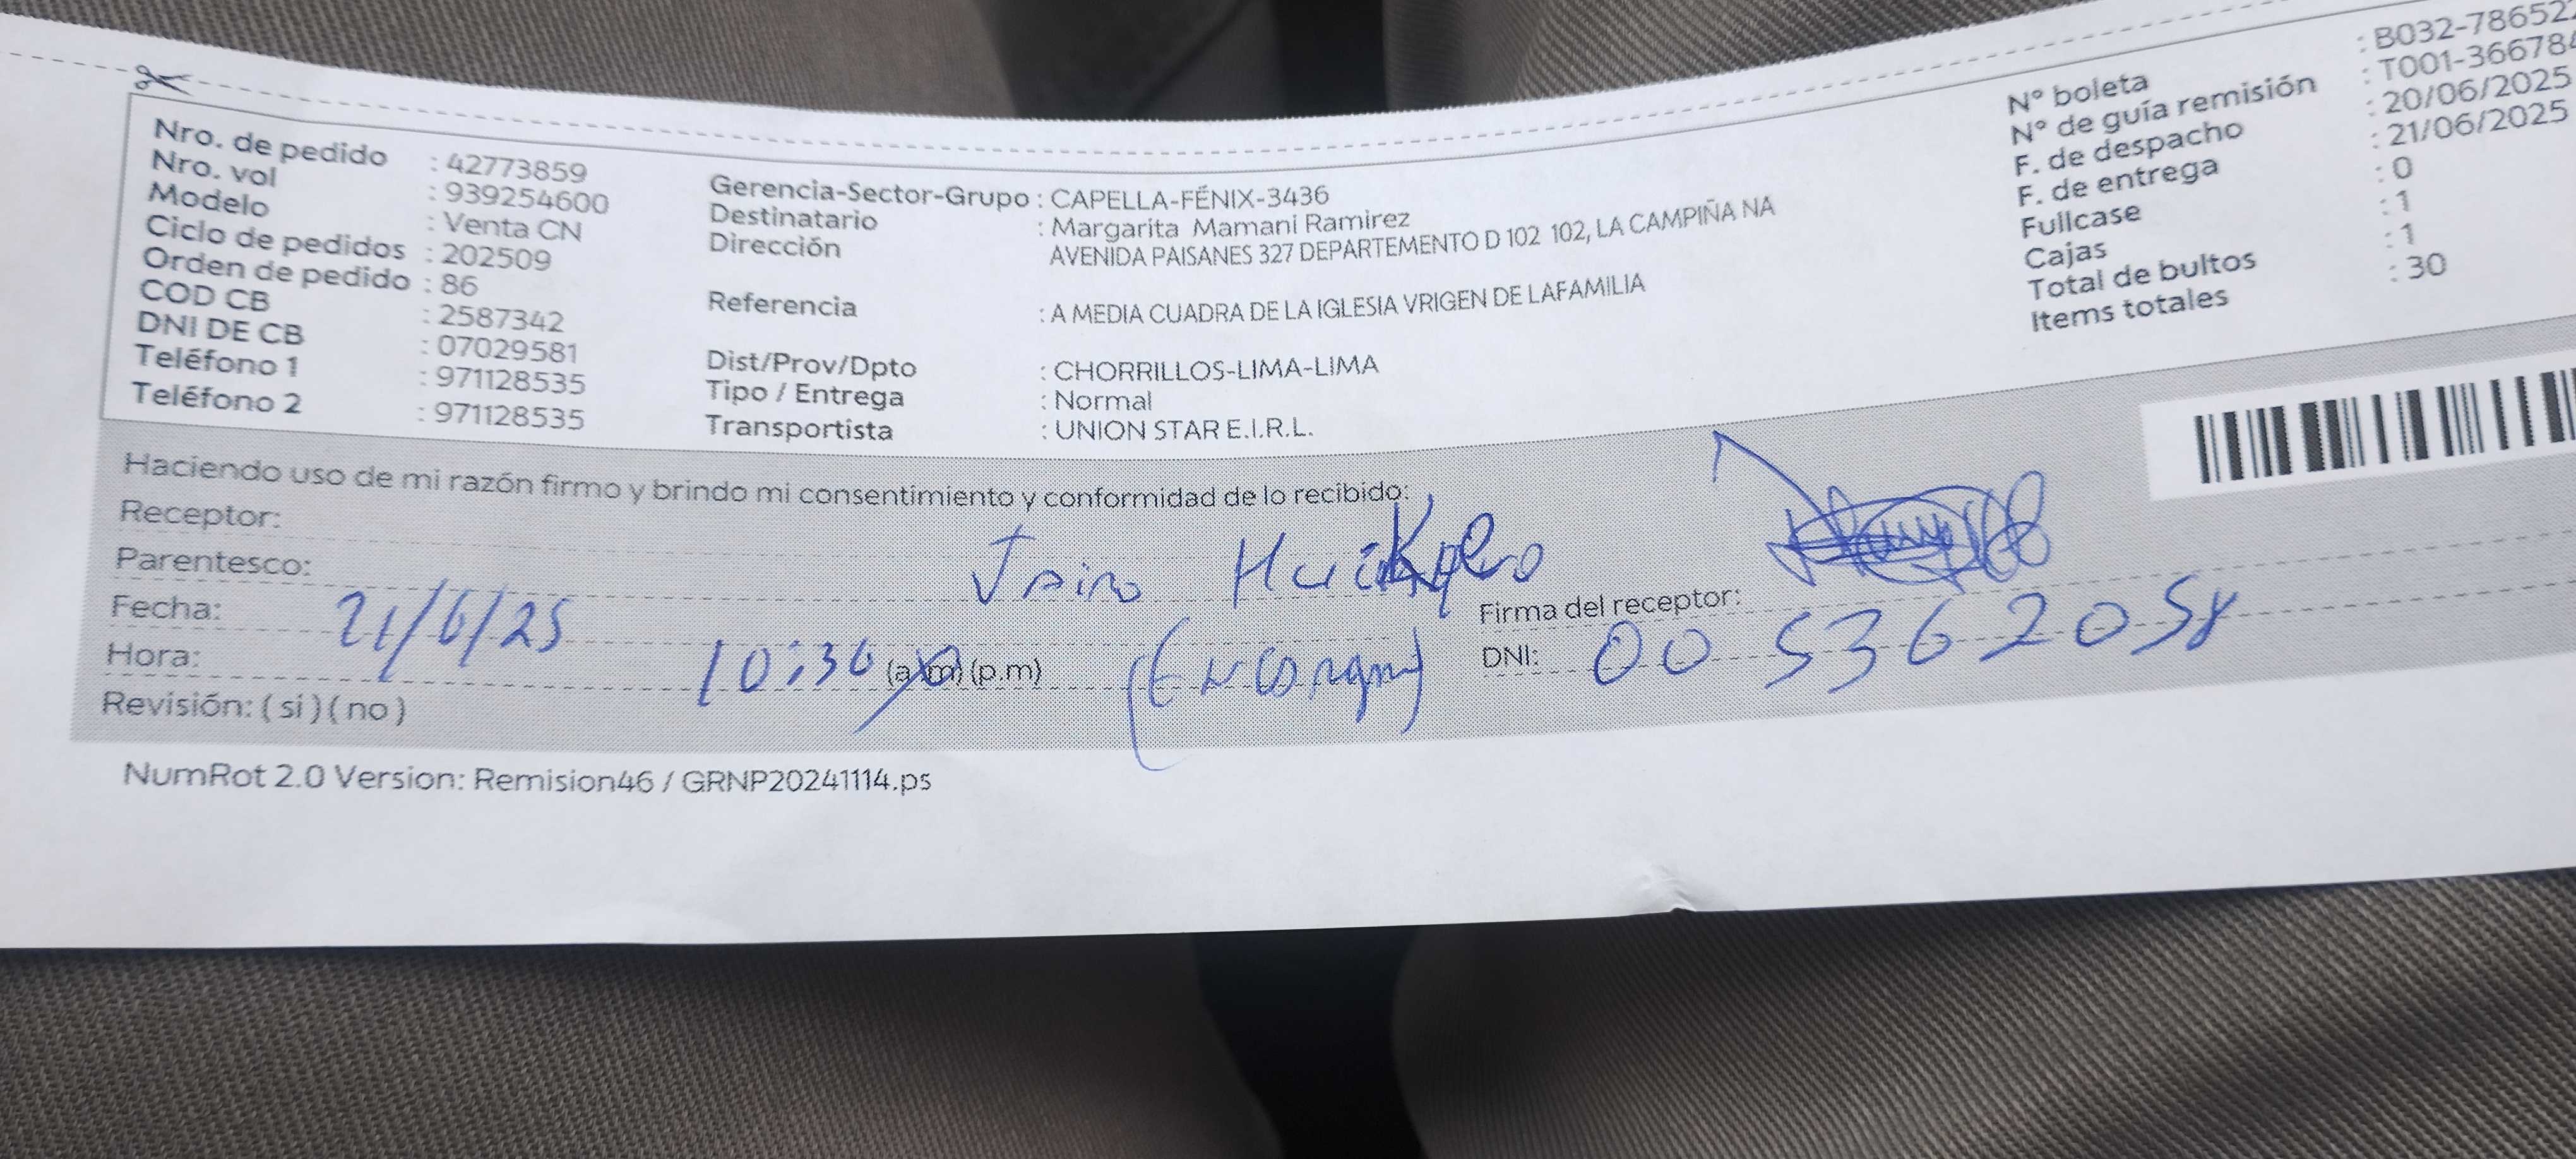 Nro. de pedido : 42773859
Nro. vol : 939254600
Modelo : Venta CN
Ciclo de pedidos : 202509
Orden de pedido : 86
COD CB : 2587342
DNI DE CB : 07029581
Teléfono 1 : 971128535
Teléfono 2 : 971128535
Gerencia-Sector-Grupo : CAPELLA-FÉNIX-3436
Destinatario : Margarita Mamani Ramirez
Dirección AVENIDA PAISANES 327 DEPARTEMENTO D 102 102, LA CAMPIÑA NA
Referencia : A MEDIA CUADRA DE LA IGLESIA VRIGEN DE LAFAMILIA
Dist/Prov/Dpto : CHORRILLOS-LIMA-LIMA
Tipo / Entrega : Normal
Transportista : UNION STAR E.I.R.L.
N° boleta : B032-78652
N° de guía remisión : T001-366784
F. de despacho : 20/06/2025
F. de entrega : 21/06/2025
Fullcase : 0
Cajas : 1
Total de bultos : 1
Items totales : 30
Haciendo uso de mi razón firmo y brindo mi consentimiento y conformidad de lo recibido:
Receptor: Jairo
Parentesco:
Firma del receptor:
Fecha: 21/6/25
Hora: 10:36 (a.m) (p.m)
DNI:
Revisión: ( si ) ( no )
NumRot 2.0 Version: Remision46 / GRNP20241114.ps